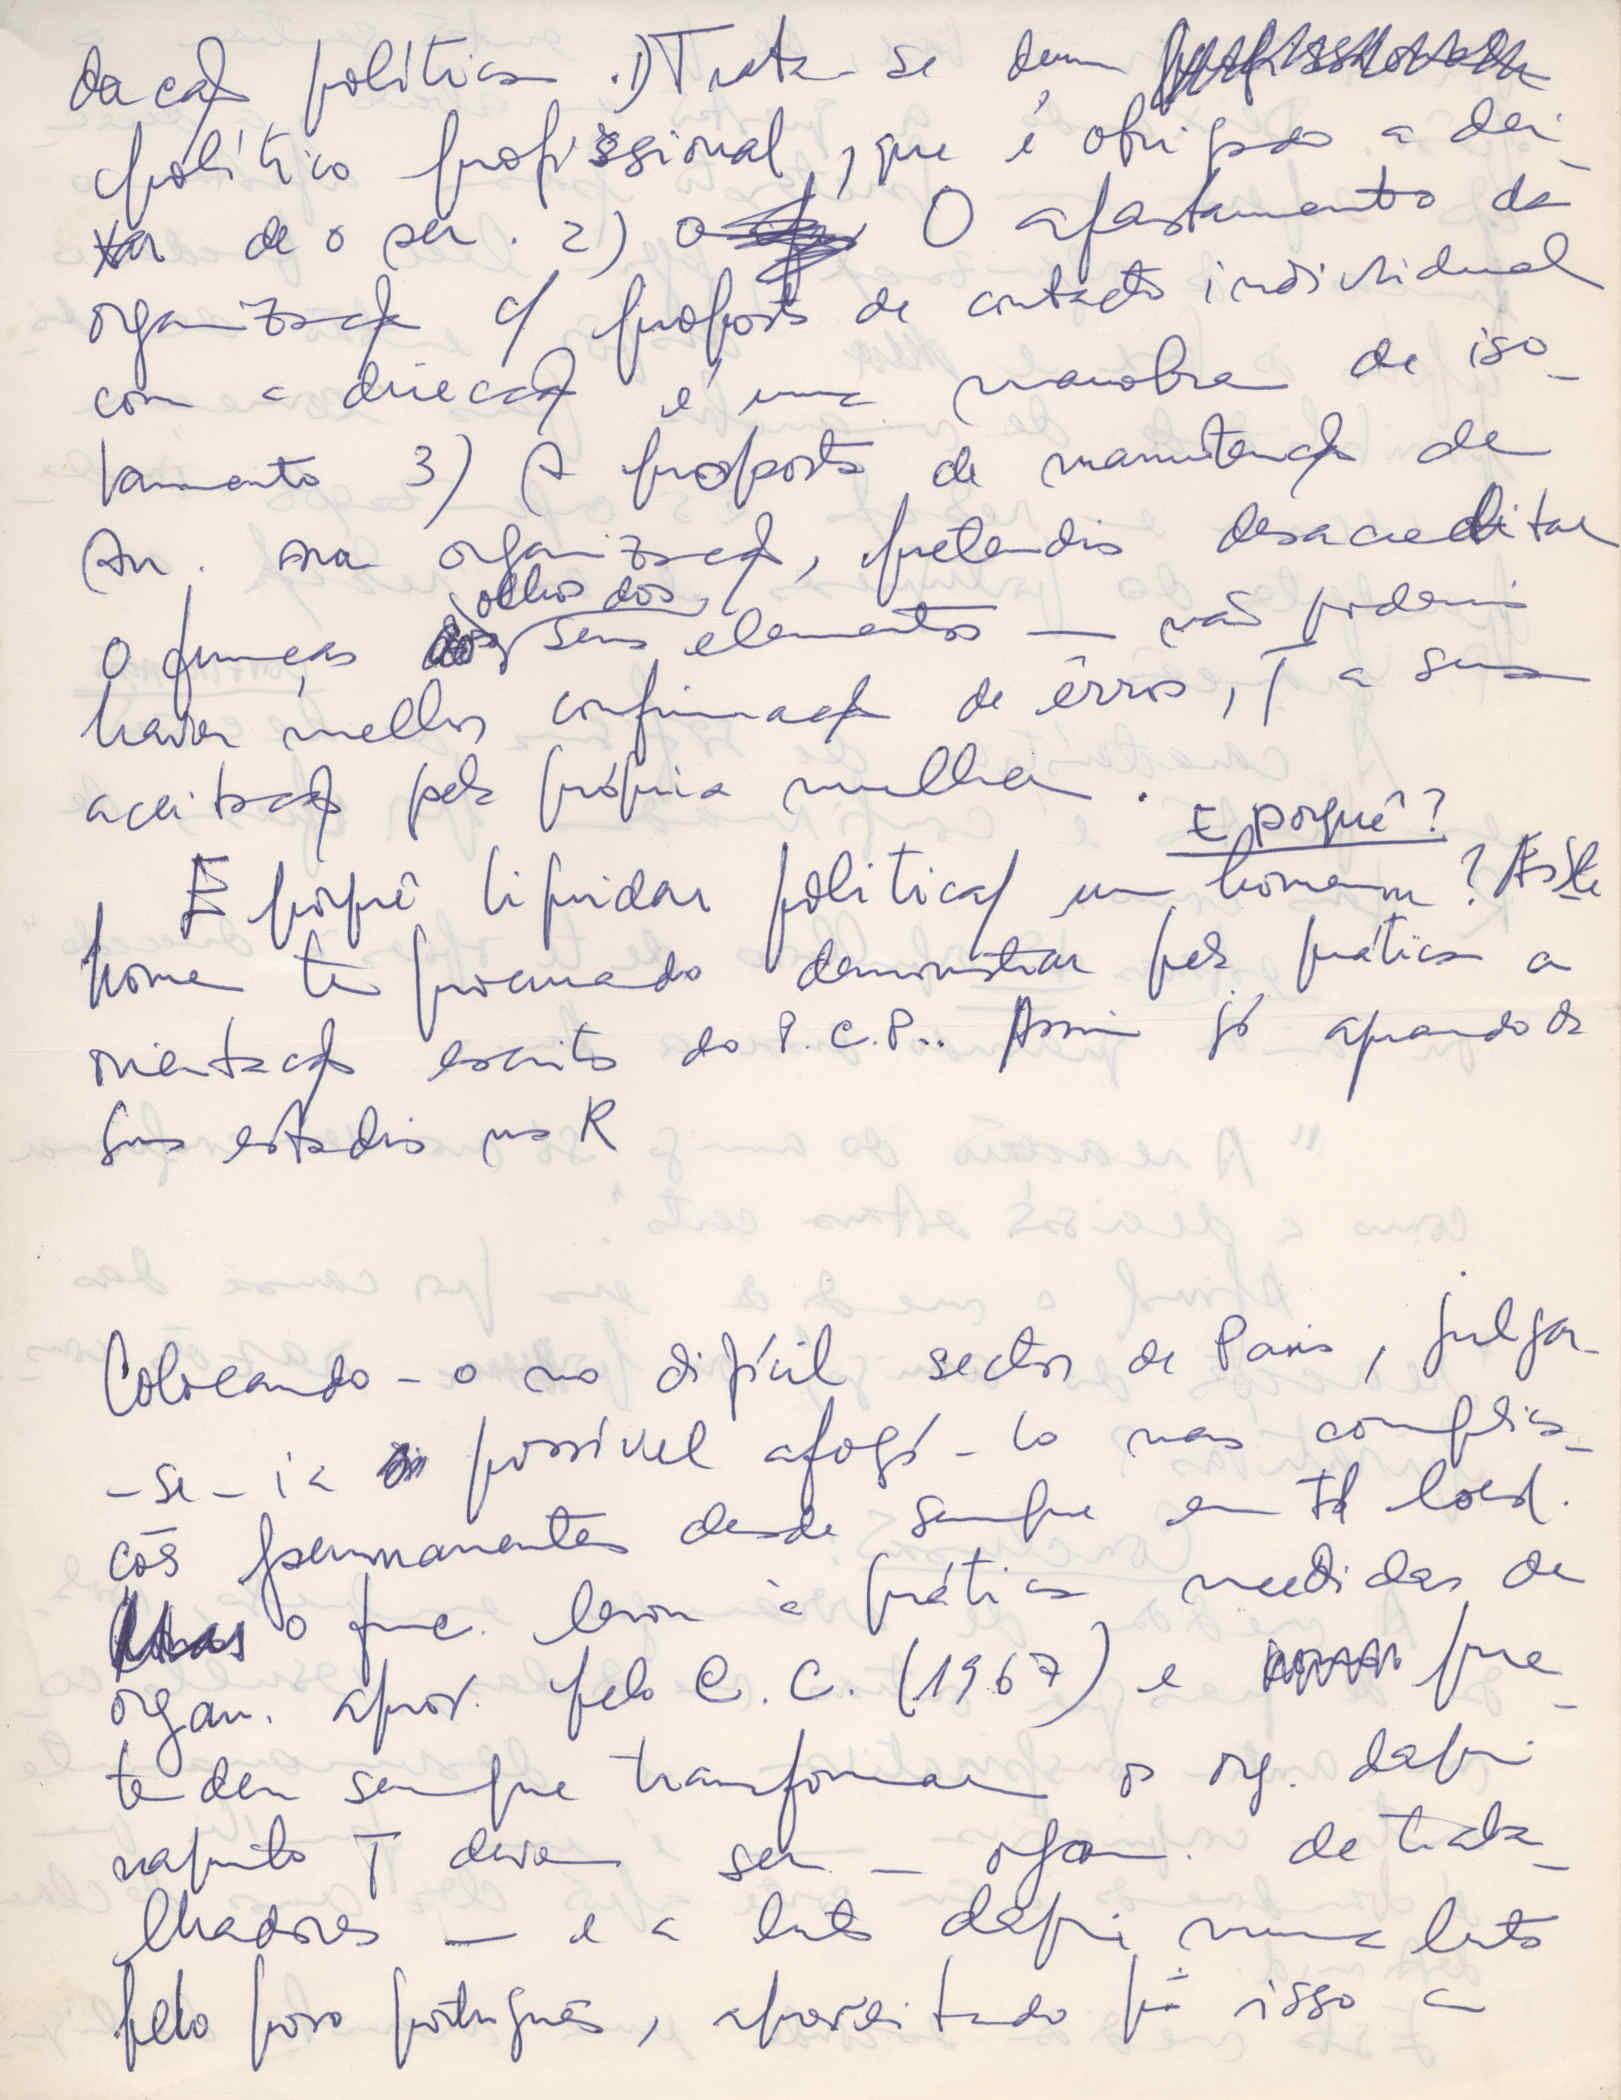 dação política. 1) Trata-se dum
político profissional, que é obrigado a dei-
xar de o ser. 2) O afastamento da
organização c/ proposta de contacto individual
com a direcção é uma manobra de iso-
lamento 3) A proposta de manutenção de
An. na organização, pretendia desacreditar
olhos dos
o func. aos seus elementos — não poderia
haver melhor confirmação de êrros, T a sua
aceitação pela própria mulher.
E porquê?
E porquê liquidar política/ um homem? Este
homem tem procurado demonstrar pela prática a
orientação escrita do P.C.P.. Assim já aquando da
sua estadia na R
Colocando-o no difícil sector de Paris, julgar-
-se-ia possível afogá-lo nas complica-
ções permanentes desde sempre em tal local.
Mas o func. levou à prática medidas de
organ. aprov. pelo C.C. (1967) e pre-
tendeu sempre transformar as org. daqui
naquilo T devem ser — organ. de traba-
lhadores — e a luta daqui numa luta
pelo povo português, aproveitando pª isso a